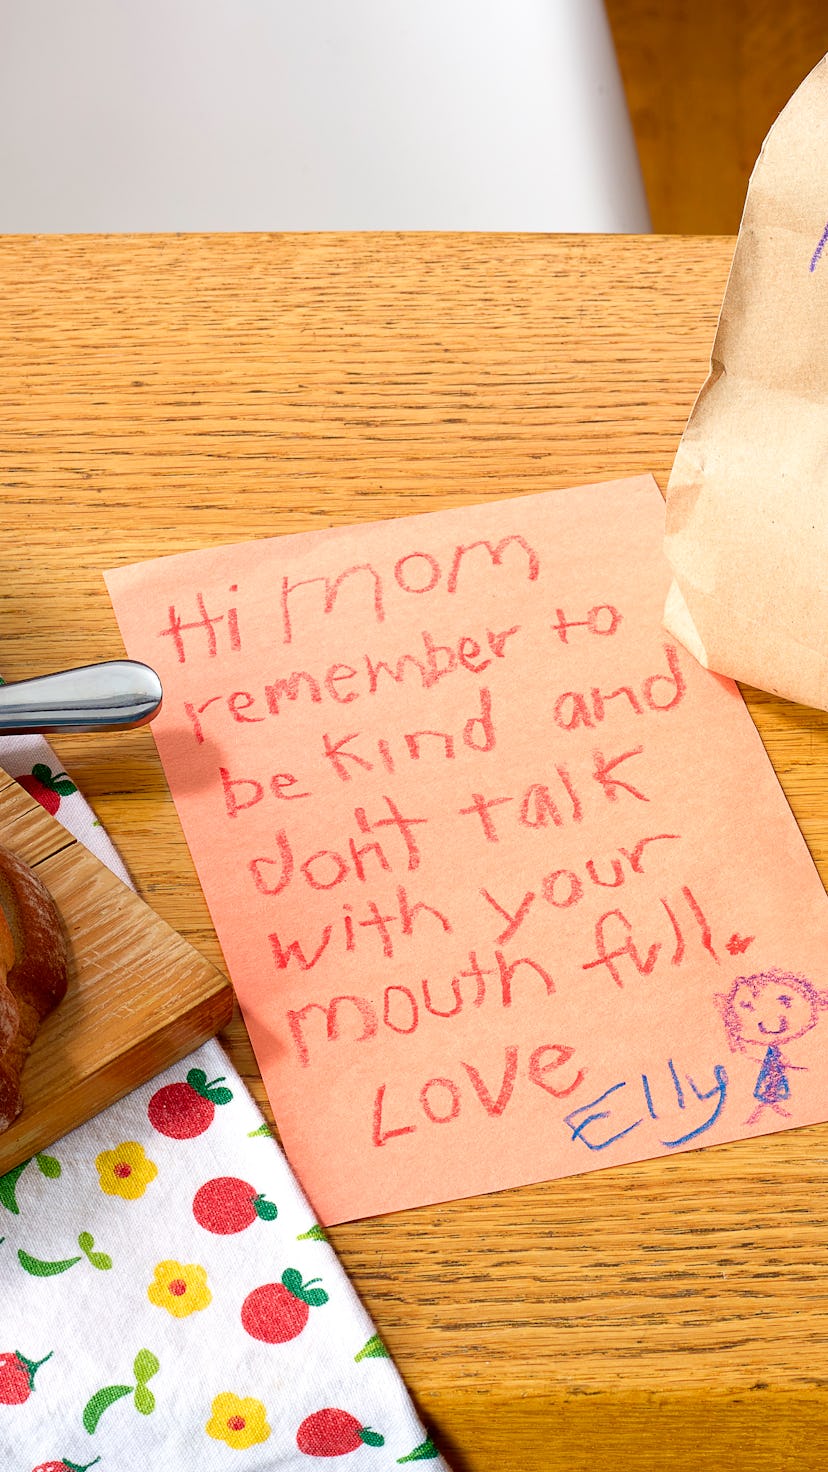 Hi mom
remember to
be kind and
don't talk
with your
mouth full.
Love Elly